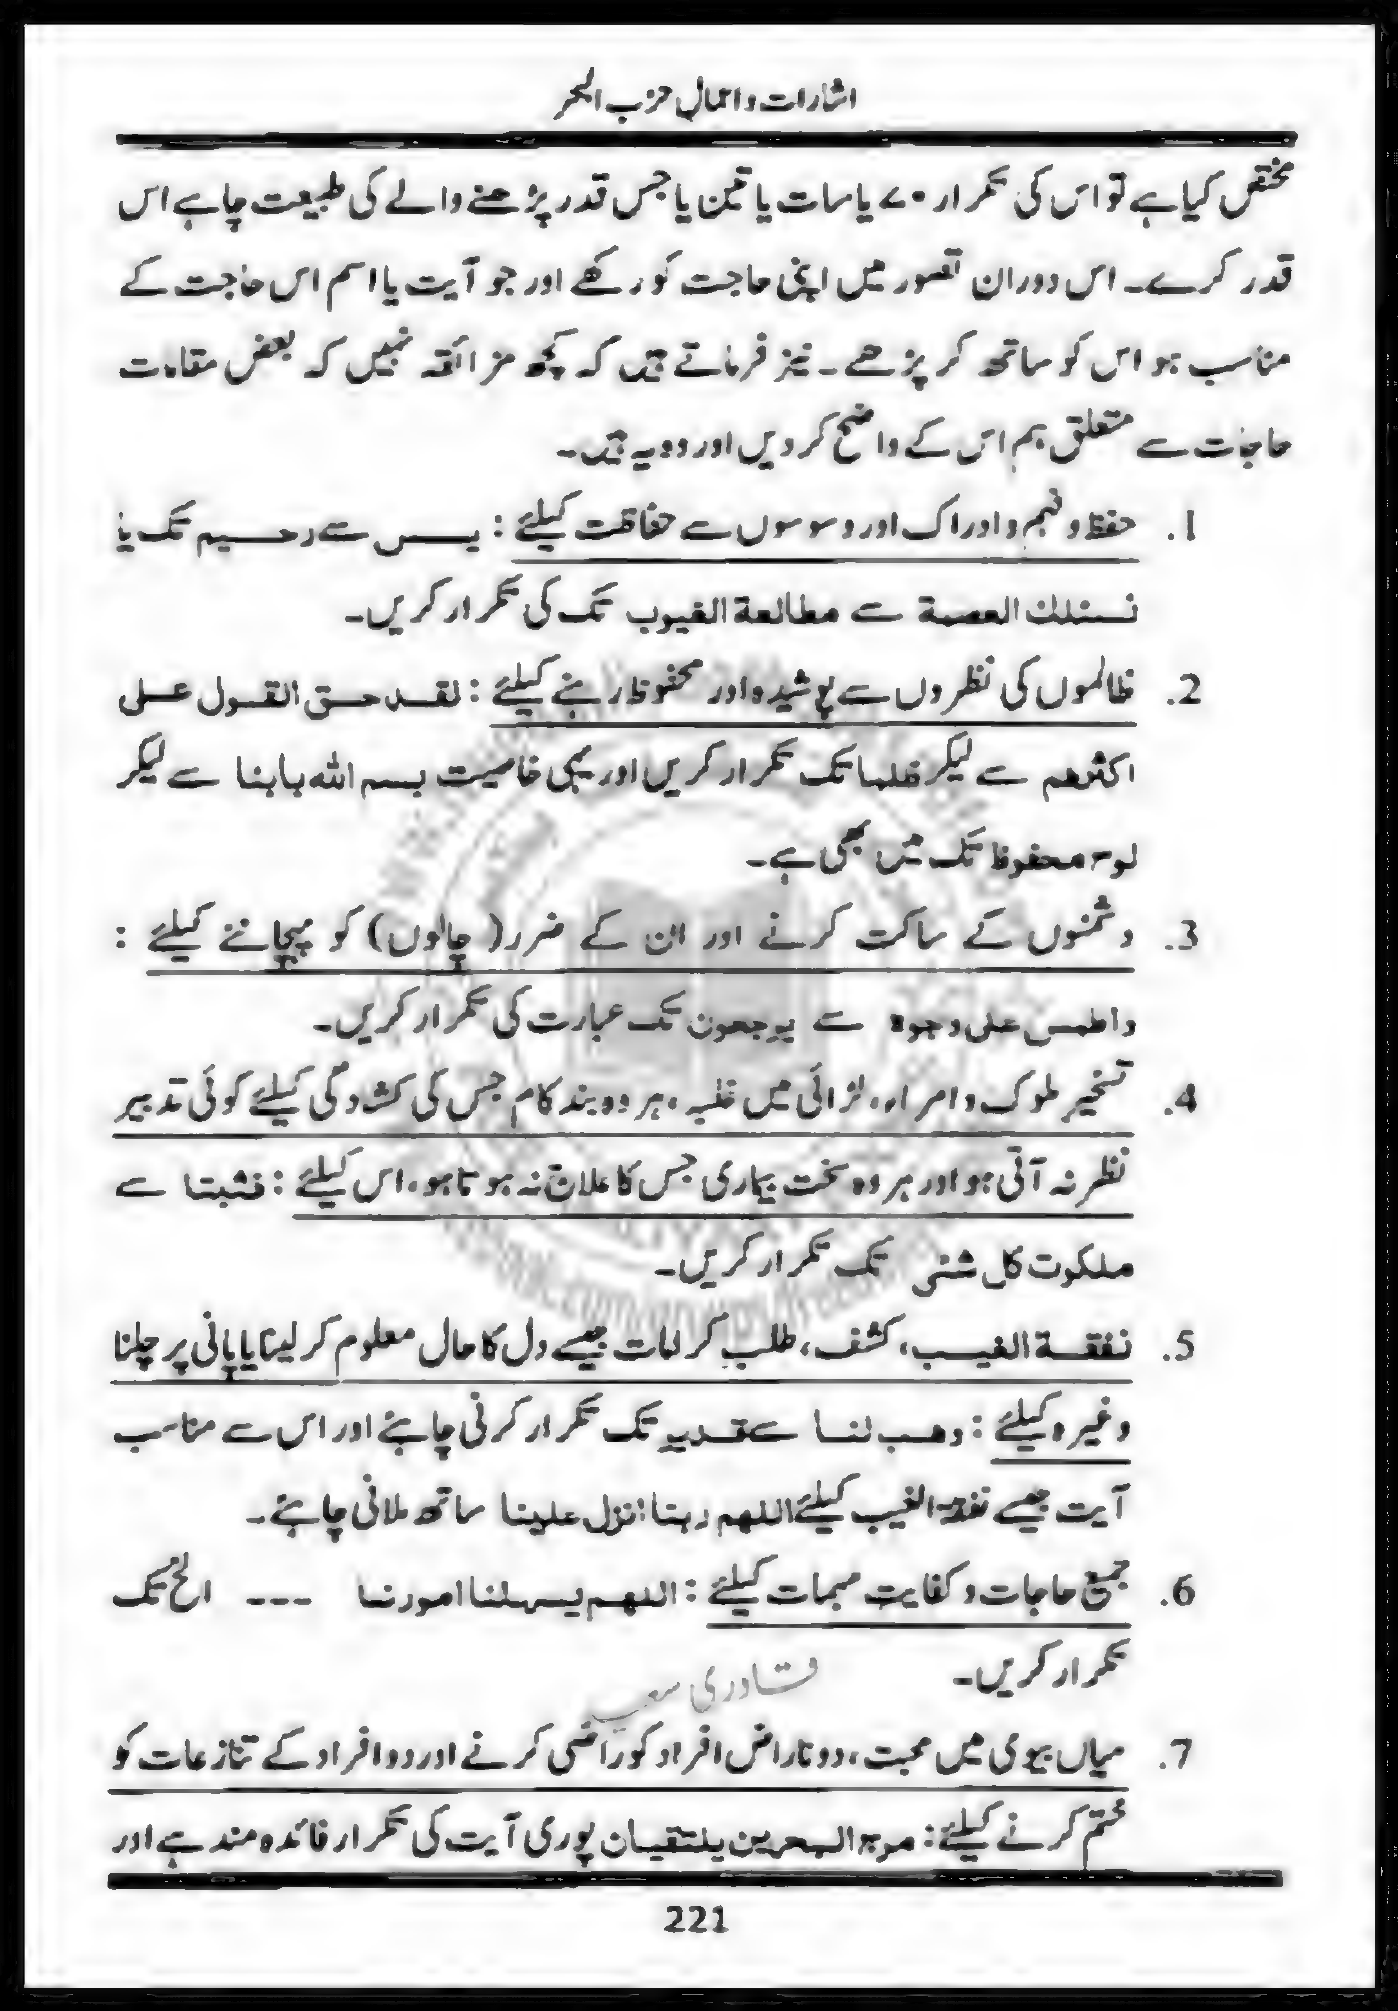 اشارات و اعمال حزب البحر
مختص کیا ہے تو اس کی تکرار ۷۰ یا سات یا تین یا جس قدر پڑھنے والے کی طبیعت چاہے اس
قدر کرے۔ اس دوران تصور میں اپنی حاجت کو رکھے اور جو آیت یا اسم اس حاجت کے
مناسب ہو اس کو ساتھ کر پڑھے۔ نیز فرماتے ہیں کہ کچھ مزائقہ نہیں کہ بعض مقامات
حاجات سے متعلق ہم اس کے واضح کر دیں اور وہ یہ ہیں۔
1. حفظ و فہم و ادراک اور وسوسوں سے حفاظت کیلئے : یس سے رحیم تک یا
نسئلك العصمة سے مطالعة الغیوب تک کی تکرار کریں۔
2. ظالموں کی نظروں سے پوشیدہ اور محفوظ رہنے کیلئے : لقد حق القول علی
اکثرھم سے لیکر تک تکرار کریں اور یہی خاصیت بسم اللہ بابنا سے لیکر
لوح محفوظ تک میں بھی ہے۔
3. دشمنوں کے ساکت کرنے اور ان کے ضرر (چالوں) کو پہچاننے کیلئے :
واطمس علی وجوہ سے یرجعون تک عبارت کی تکرار کریں۔
4. تسخیر ملوک و امراء، لڑائی میں غلبہ، ہر وہ بند کام جس کی کشادگی کیلئے کوئی تدبیر
نظر نہ آتی ہو اور ہر وہ سخت بیماری جس کا علاج نہ ہوتا ہو، اس کیلئے : فثبتنا سے
ملکوت کل شئی تک تکرار کریں۔
5. نفقۃ الغیب، کشف، طلب کرامات جیسے دل کا حال معلوم کر لینا یا پانی پر چلنا
وغیرہ کیلئے : وھب لنا سے قدیر تک تکرار کرنی چاہئے اور اس سے مناسب
آیت جیسے نفقۃ الغیب کیلئے اللھم ربنا انزل علینا ساتھ ملانی چاہئے۔
6. جمیع حاجات و کفایت مہمات کیلئے : اللھم یسرلنا امورنا --- الخ تک
تکرار کریں۔
قادری سعید
7. میاں بیوی میں محبت، دو ناراض افراد کو راضی کرنے اور دو افراد کے تنازعات کو
ختم کرنے کیلئے : مرج البحرین یلتقیان پوری آیت کی تکرار فائدہ مند ہے اور
221